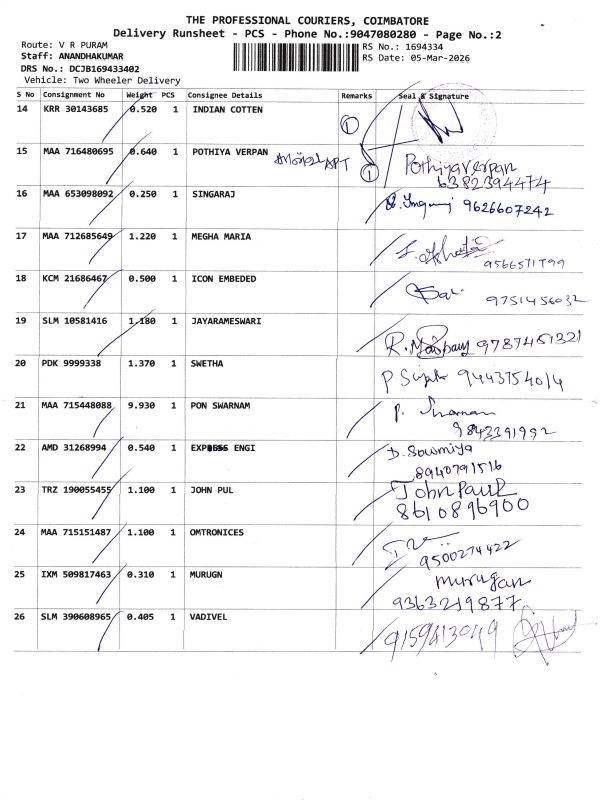 THE PROFESSIONAL COURIERS, COIMBATORE
Delivery Runsheet - PCS - Phone No.:9047080280 - Page No.:2
Route: V R PURAM
RS No.: 1694334
Staff: ANANDHAKUMAR
RS Date: 05-Mar-2026
DRS No.: DCJB169433402
Vehicle: Two Wheeler Delivery
S No Consignment No Weight PCS Consignee Details Remarks Seal & Signature
14 KRR 30143685 0.520 1 INDIAN COTTEN 1
15 MAA 716480695 0.640 1 POTHIYA VERPAN APT 1 Pothiyaverpan
6382394474
16 MAA 653098092 0.250 1 SINGARAJ 9626607242
17 MAA 712685649 1.220 1 MEGHA MARIA
9566571799
18 KCM 21686467 0.500 1 ICON EMBEDED 9751456032
19 SLM 10581416 1.180 1 JAYARAMESWARI 9787451321
20 PDK 9999338 1.370 1 SWETHA 9443754014
21 MAA 715448088 9.930 1 PON SWARNAM
9843391992
22 AMD 31268994 0.540 1 EXPRESS ENGI D. Sowmiya
8940791516
23 TRZ 190055455 1.100 1 JOHN PUL John Paul
8610896900
24 MAA 715151487 1.100 1 OMTRONICES
9500274422
25 IXM 509817463 0.310 1 MURUGN murugan
9363219877
26 SLM 390608965 0.405 1 VADIVEL 9159413049